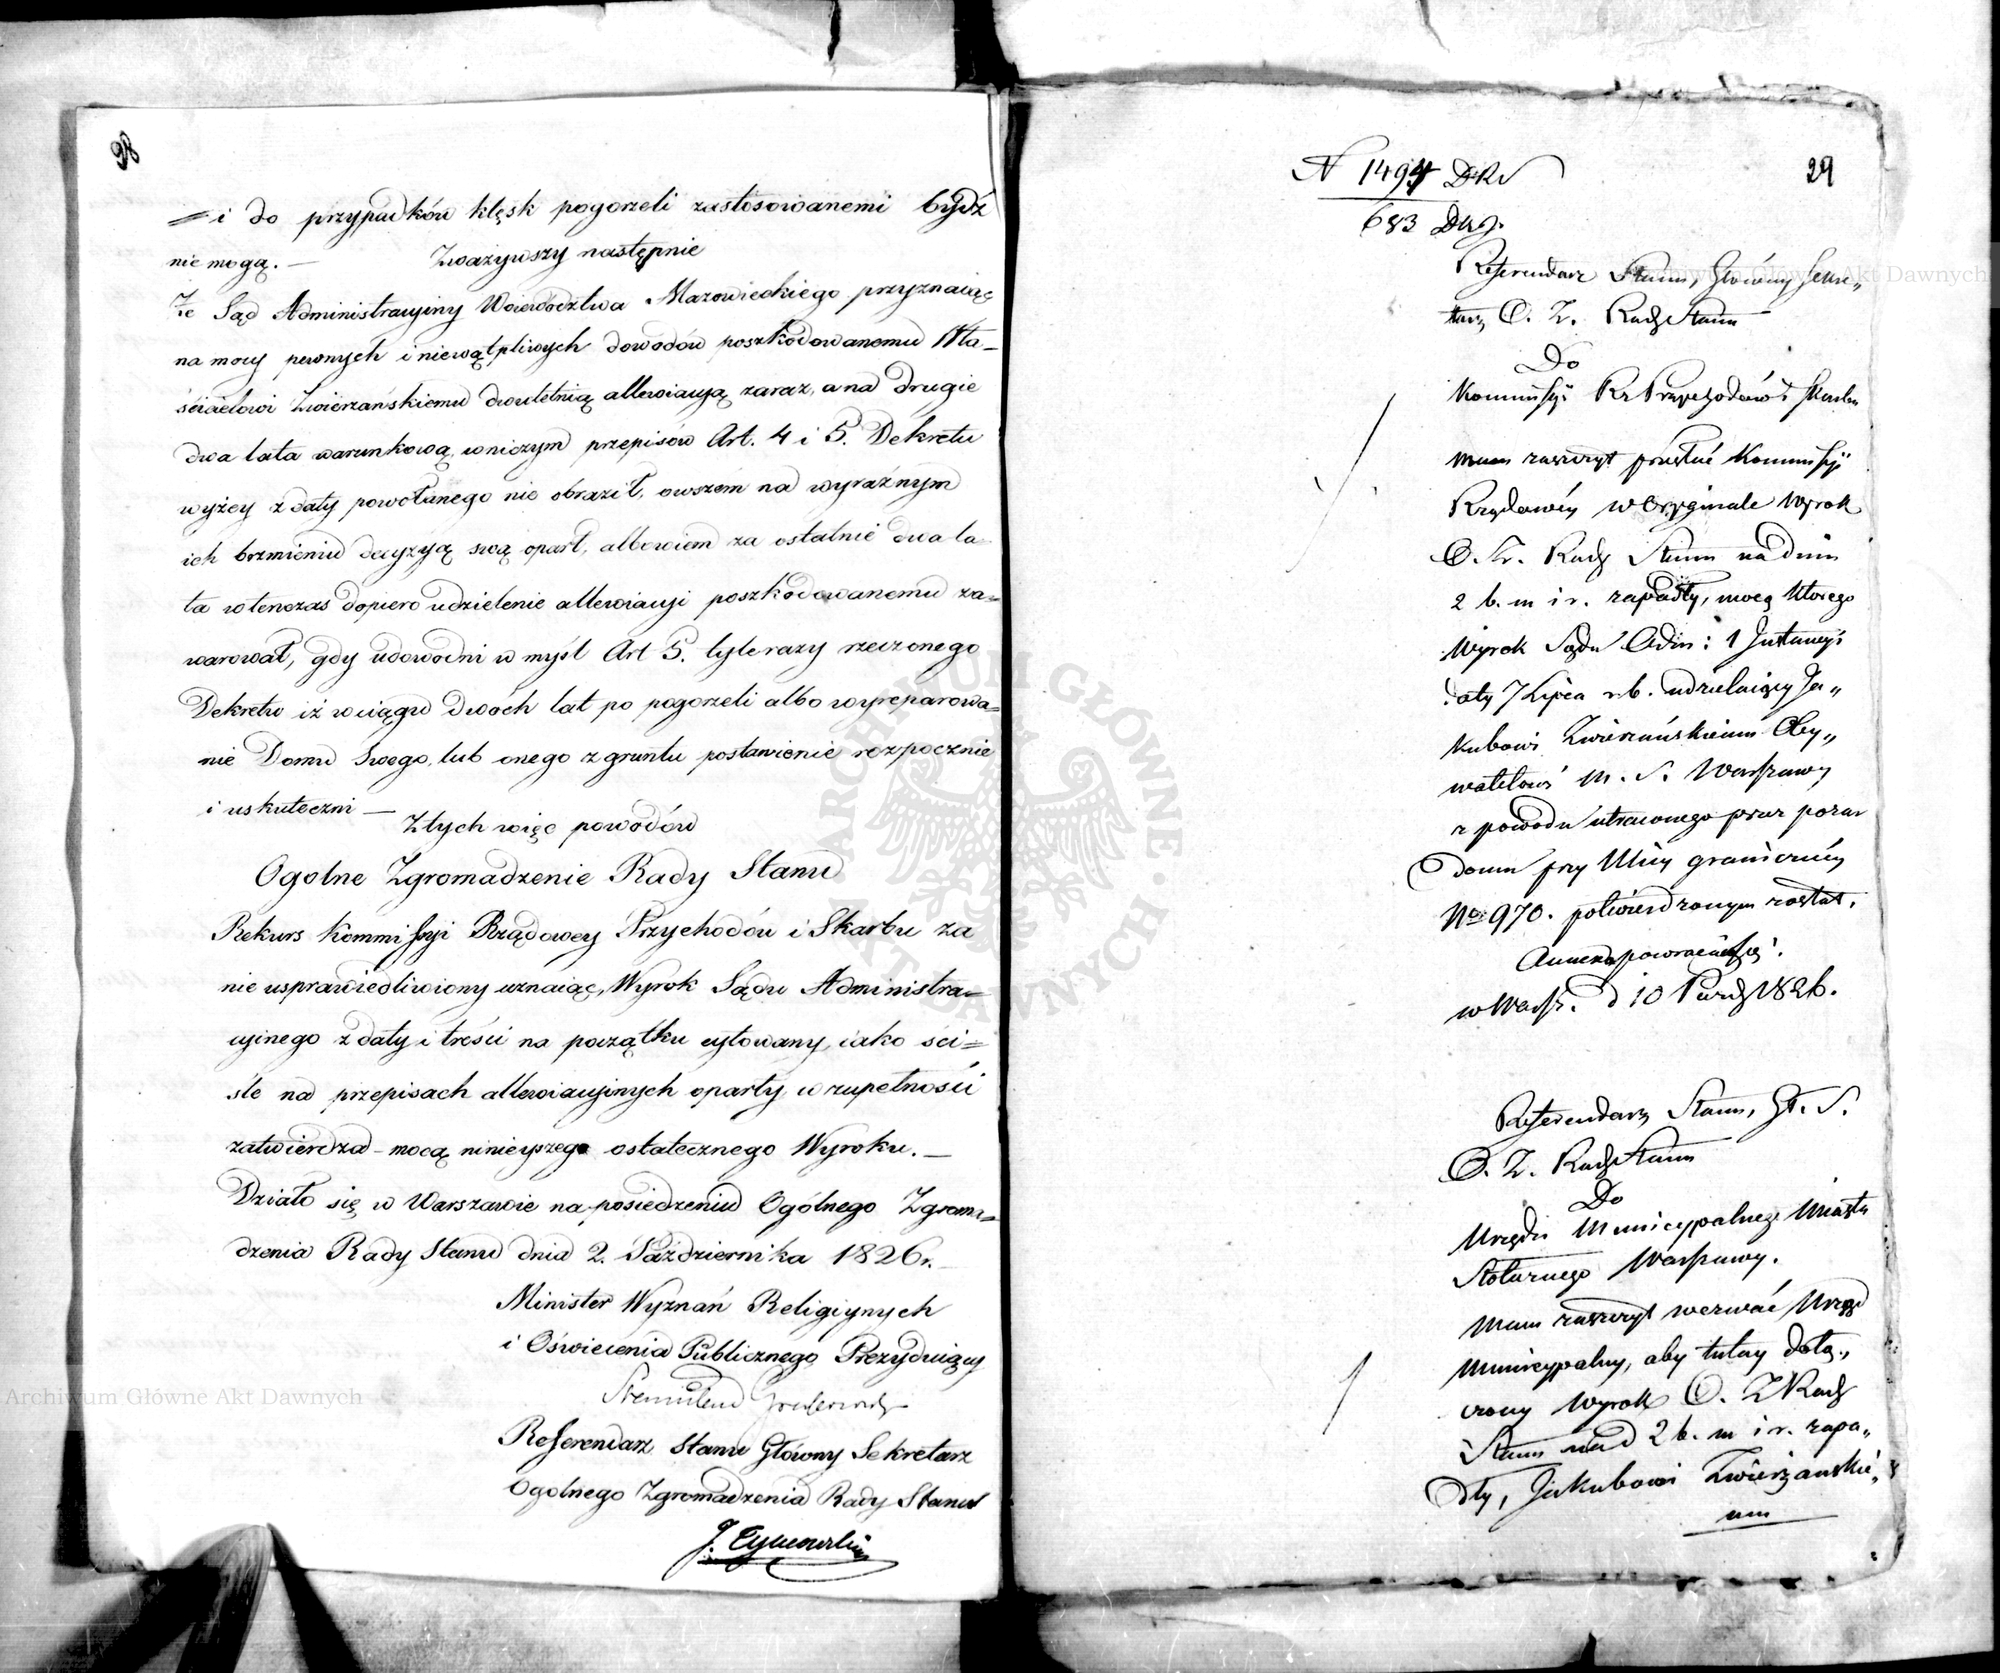 28
i do przypadków klęsk pogorzeli zastosowanemi bydź
nie mogą. — Zważywszy następnie
Że Sąd Administracyiny Woiewództwa Mazowieckiego przyznaiąc
na mocy pewnych i niewątpliwych dowodów poszkodowanemu Wła-
ścicielowi Zwierzańskiemu dwuletnią allewiacyą zaraz, a na drugie
dwa lata warunkową, w niczym przepisów Art. 4 i 5. Dekretu
wyżey z daty powołanego nie obraził, owszem na wyraźnym
ich brzmieniu decyzyą swą oparł, albowiem za ostatnie dwa la-
ta wtenczas dopiero udzielenie allewiacyi poszkodowanemu za-
warował, gdy udowodni w myśl Art 5. tylerazy rzeczonego
Dekretu iż w ciągu dwóch lat po pogorzeli albo wyreparowa-
nie Domu Swego, lub onego z gruntu postawienie rozpocznie
i uskuteczni —
Z tych więc powodów
Ogolne Zgromadzenie Rady Stanu
Rekurs Kommissyi Rządowey Przychodów i Skarbu za
nie usprawiedliwiony uznaiąc, Wyrok Sądu Administra-
cyinego z daty i treści na początku cytowany, iako ści-
śle na przepisach allewiacyinych oparty, w zupełności
zatwierdza – mocą ninieyszego ostatecznego Wyroku. —
Działo się w Warszawie na posiedzeniu Ogólnego Zgroma-
dzenia Rady Stanu dnia 2. Października 1826 r.
Minister Wyznań Religiynych
i Oświecenia Publicznego Prezyduiący
Referendarz Stanu Główny Sekretarz
Ogolnego Zgromadzenia Rady Stanu
29
N 1494 DRS
683
Referendarz Stanu, Główny Sekre„
tarz O. Z. Rady Stanu
Do
Kommissyi Rz Przychodów i Skarbu
Mam zaszczyt przesłać Kommissyi
Rządowéy w Oryginale Wyrok
O. Z. Rady Stanu na dniu
2 b. m i r. zapadły, mocą którego
Wyrok Sądu Adm: 1 Instancyi
daty 7 Lipca r.b. udzielaiący Ja„
kubowi Zwierzańskiemu Oby„
watelowi M. S. Warszawy
z powodu utraconego przez pożar
domu przy Ulicy graniczney
No 970. potwierdzonym został.
Annexa powracaią się.
w Warsz. d 10 Paźdz 1826.
Referendarz Stanu, Gł. S.
O. Z. Rady Stanu
Do
Urzędu Municypalnego Miasta
Stołecznego Warszawy.
Mam zaszczyt wezwać Urząd
Municypalny, aby tutay dołą„
czony Wyrok O. Z Rady
Stanu na d 2 b. m i r. zapa„
dły, Jakubowi Zwierzańskie„
mu
ARCHIWUM GŁÓWNE AKT DAWNYCH
Archiwum Główne Akt Dawnych
Archiwum Główne Akt Dawnych